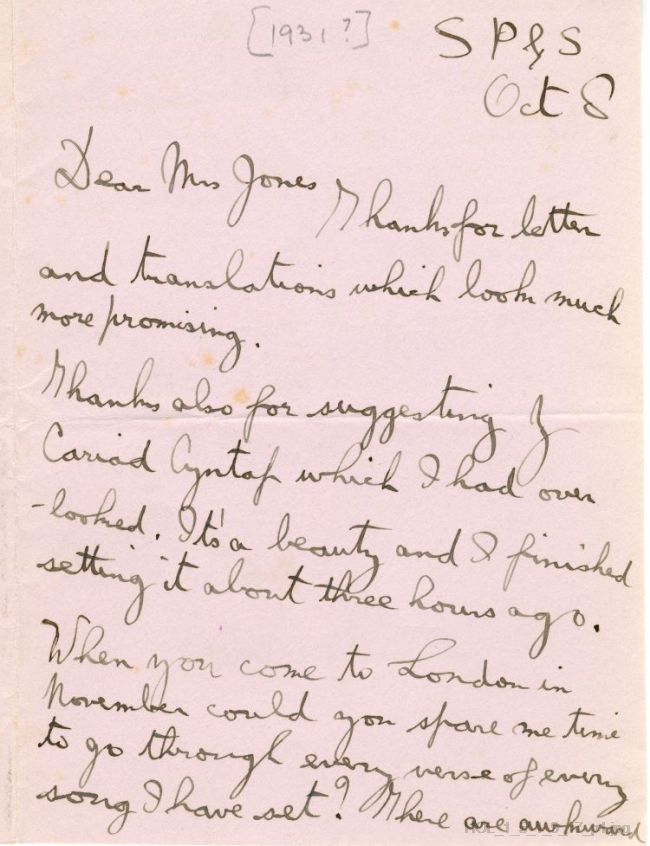 [1931?]
S P & S
Oct 8
Dear Mrs Jones Thanks for letter
and translations which look much
more promising.
Thanks also for suggesting Y
Cariad Cyntaf which I had over
-looked. It's a beauty and I finished
setting it about three hours ago.
When you come to London in
November could you spare me time
to go through every verse of every
song I have set? There are awkward